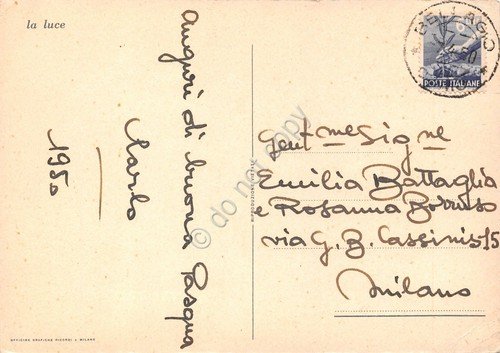 la luce
Auguri di buona Pasqua
Carlo
1950
BELLAGIO
POSTE ITALIANE
Gent.me Sig.ne
Emilia Battaglia
e Rosanna Borruso
via G. B. Cassinis 15
Milano
OFFICINE GRAFICHE RICORDI & MILANO
do not copy